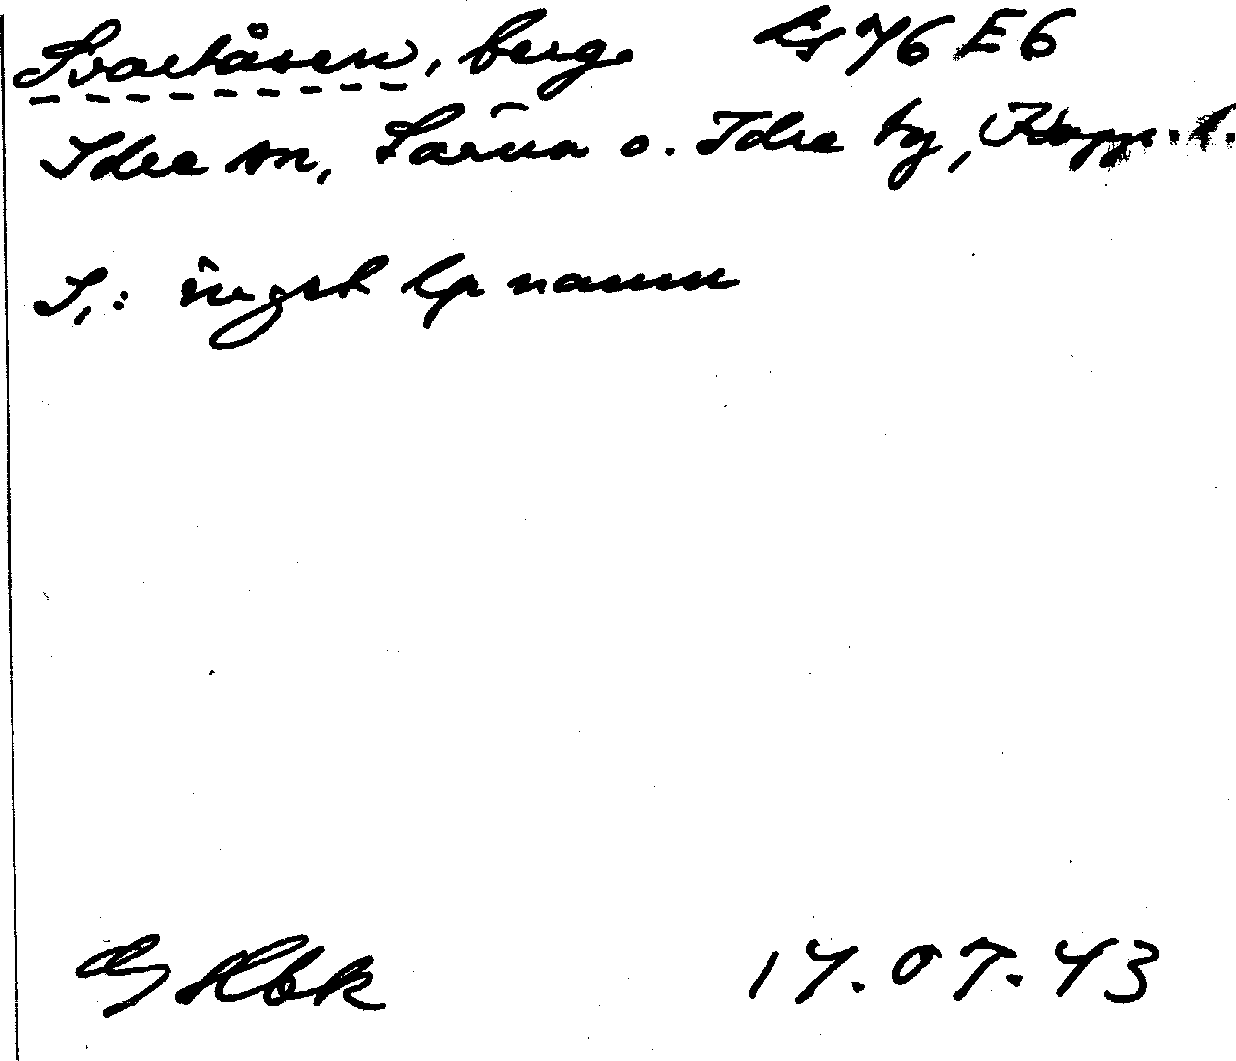 Svartåsen, berg.
76 E6
Idre sn, Särna o. Idre tg, Kopp. l.
S,: inget lp namn
17.07.43